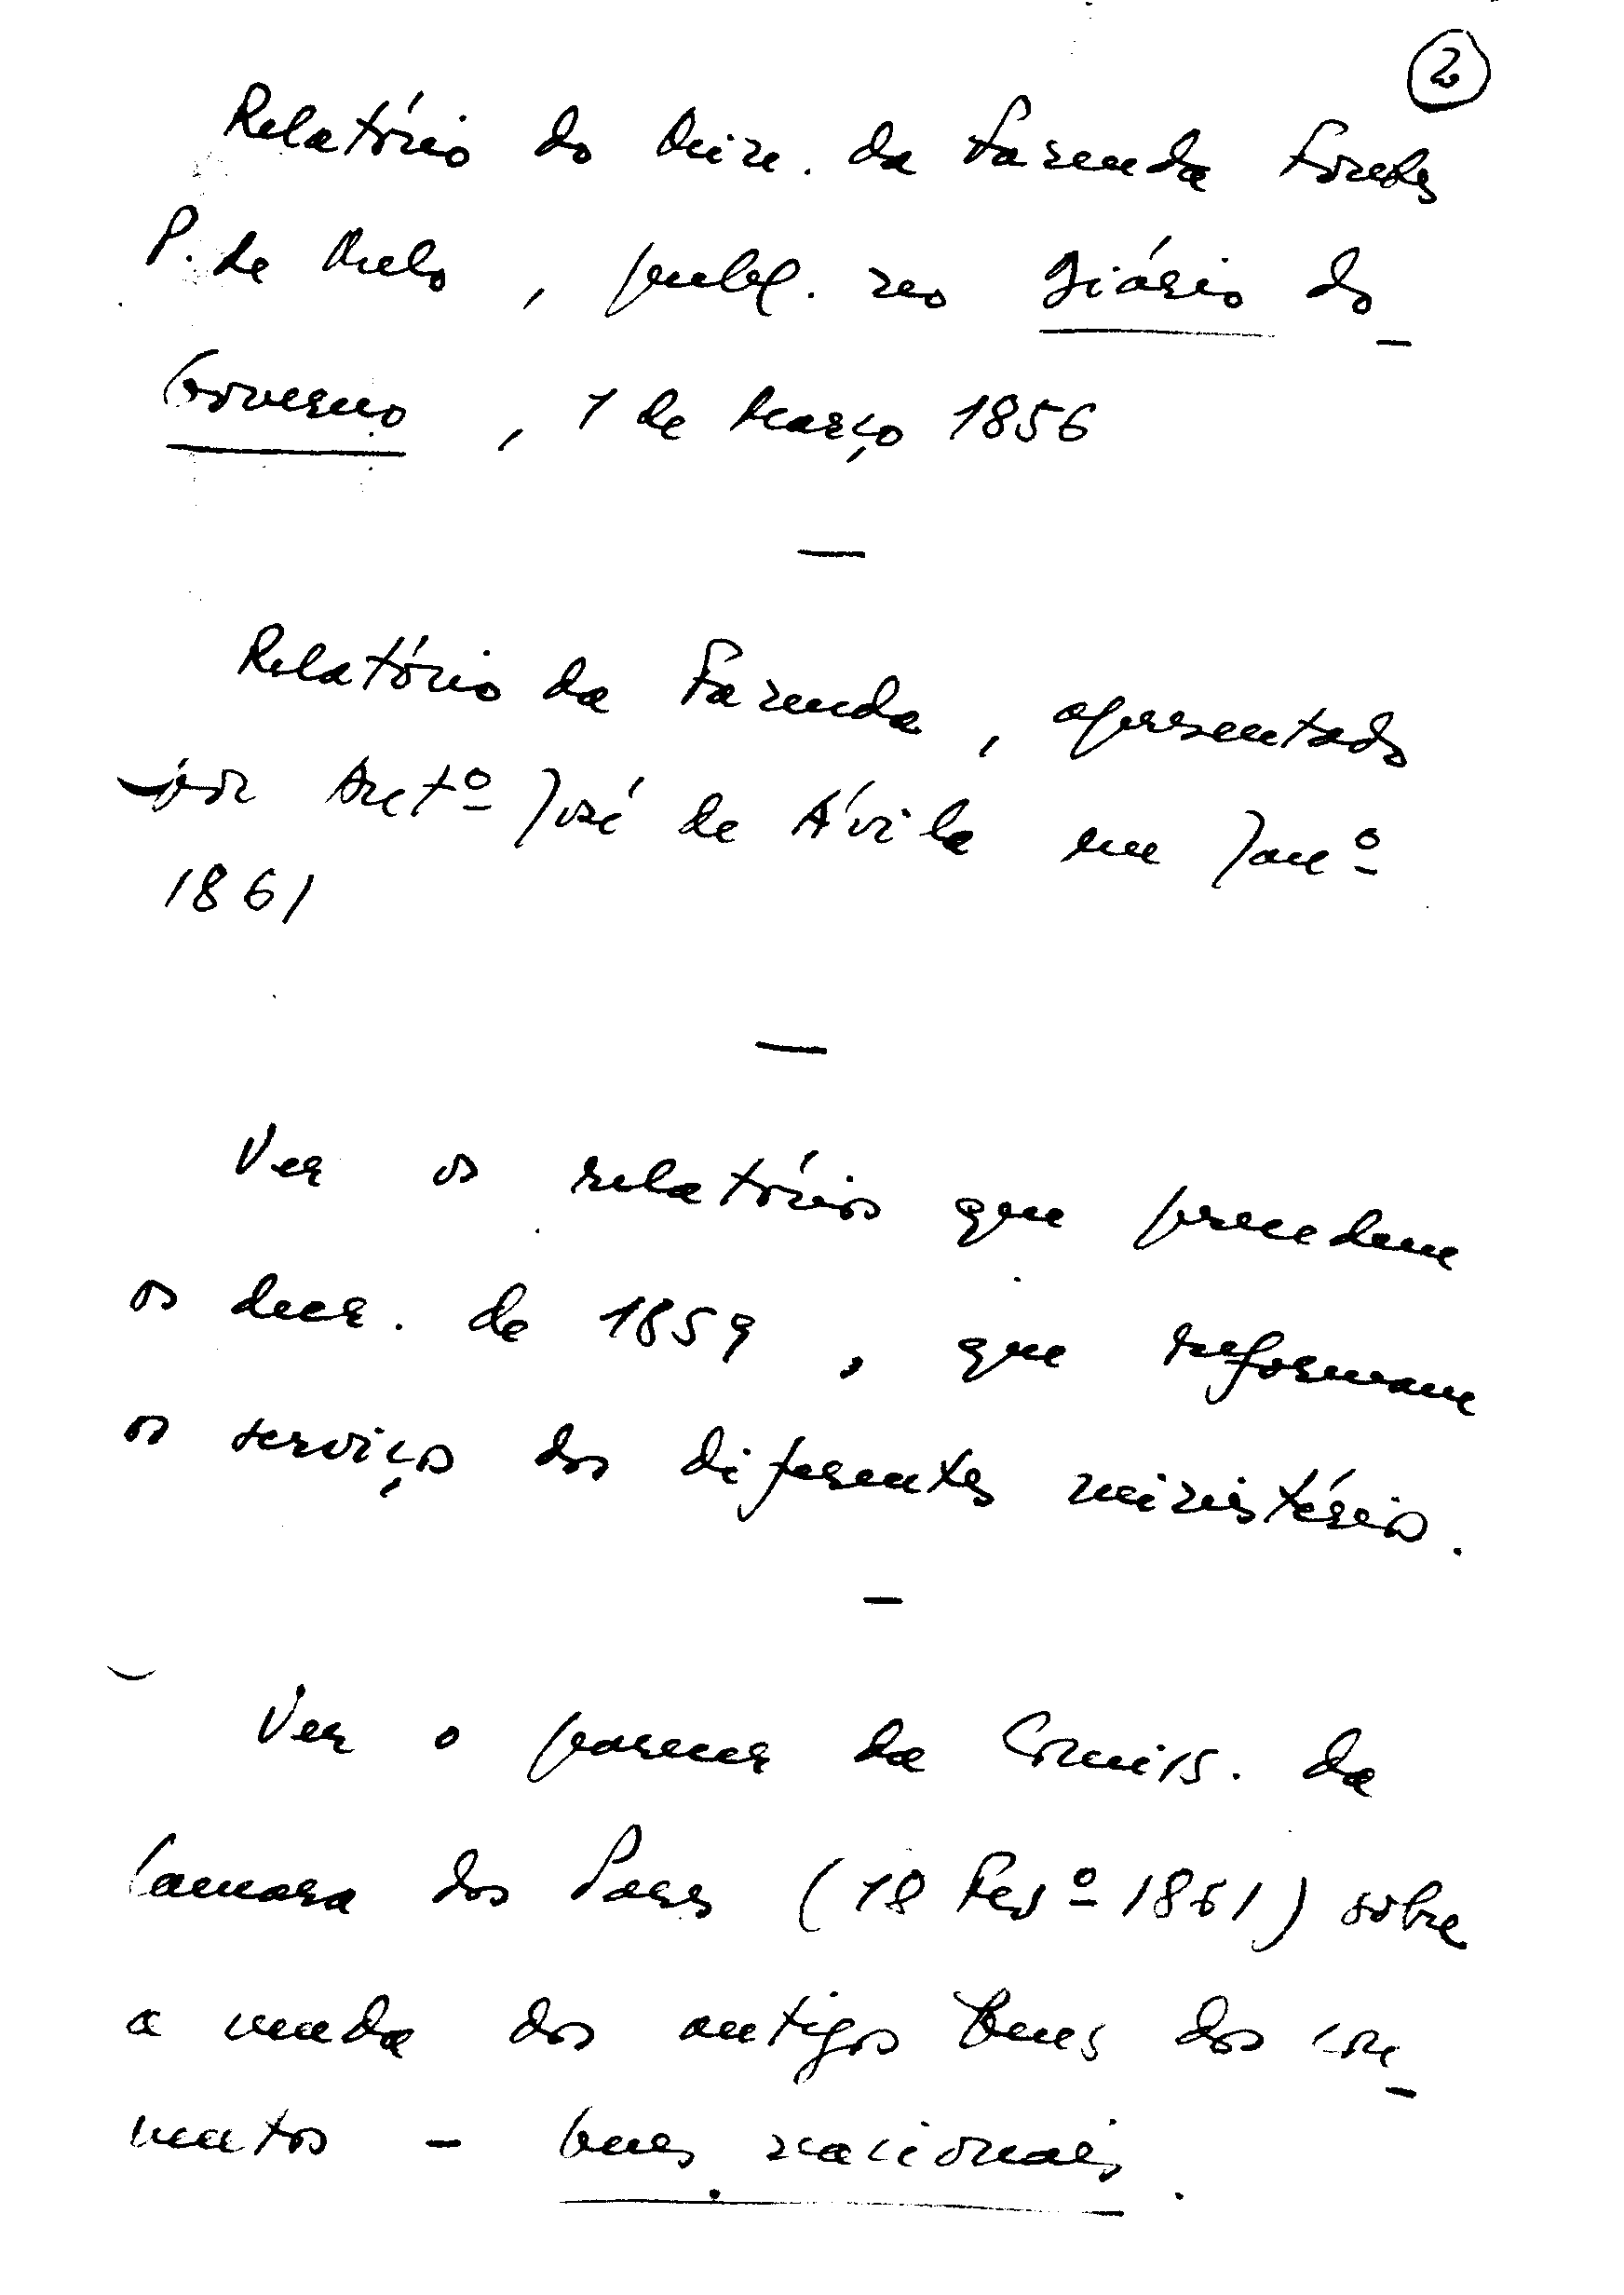 2
Relatório do Min. da Fazenda Fontes
P. de Melo, publ. no Diário do
Governo, 1 de Março 1856
—
Relatório da Fazenda, apresentado
por Antº José de Ávila em Janº
1861
—
Ver os relatórios que precedem
os decr. de 1859, que reformam
os serviços dos diferentes ministérios.
—
Ver o parecer da Comis. da
Camara dos Pares (18 Fevº 1861) sobre
a venda dos antigos bens dos con-
ventos - bens nacionais.